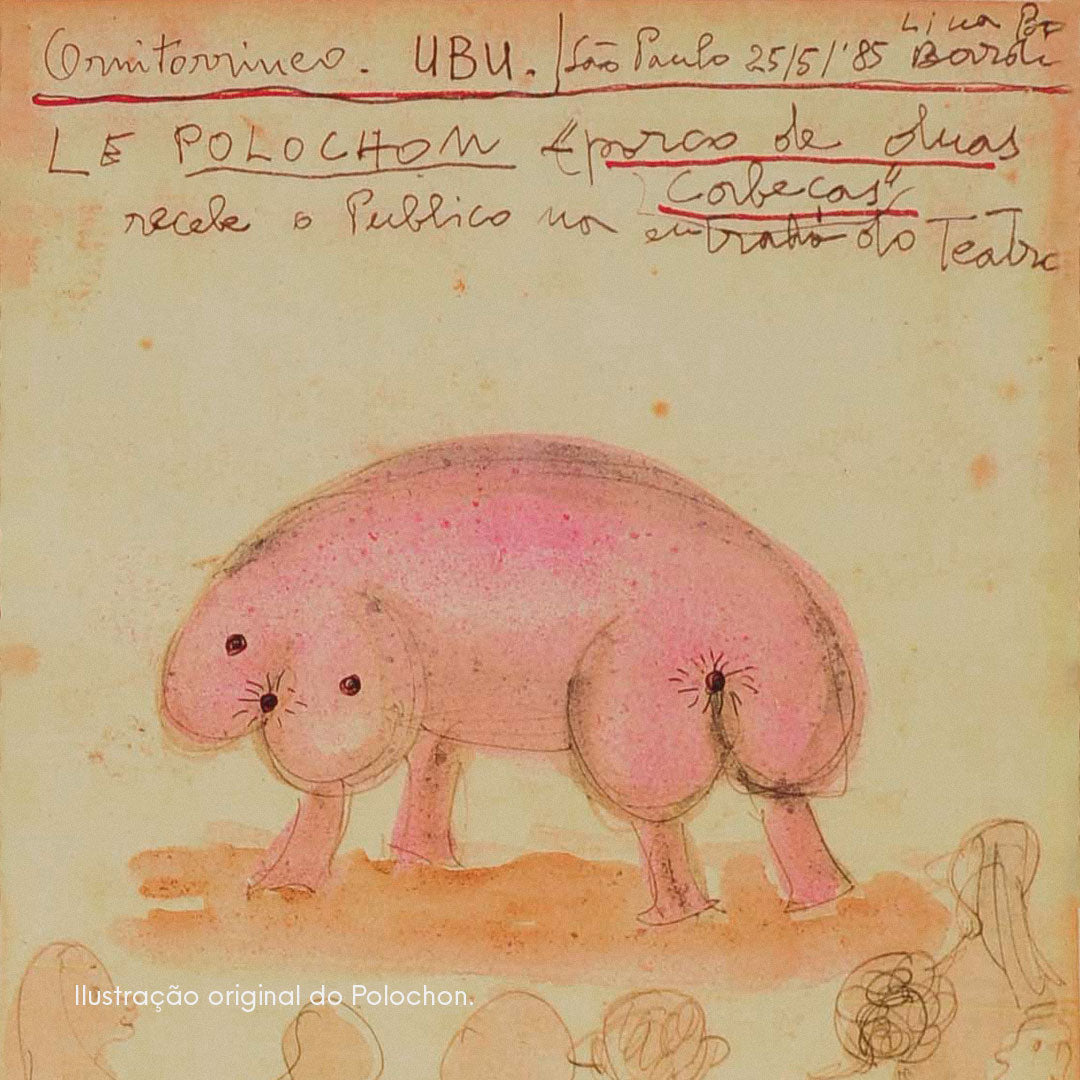 Ornitorrinco. UBU. São Paulo 25/5/'85 Lina Bo Bardi
LE POLOCHON "porco de duas
cabeças"
recebe o Publico na entrada do Teatro
Ilustração original do Polochon.